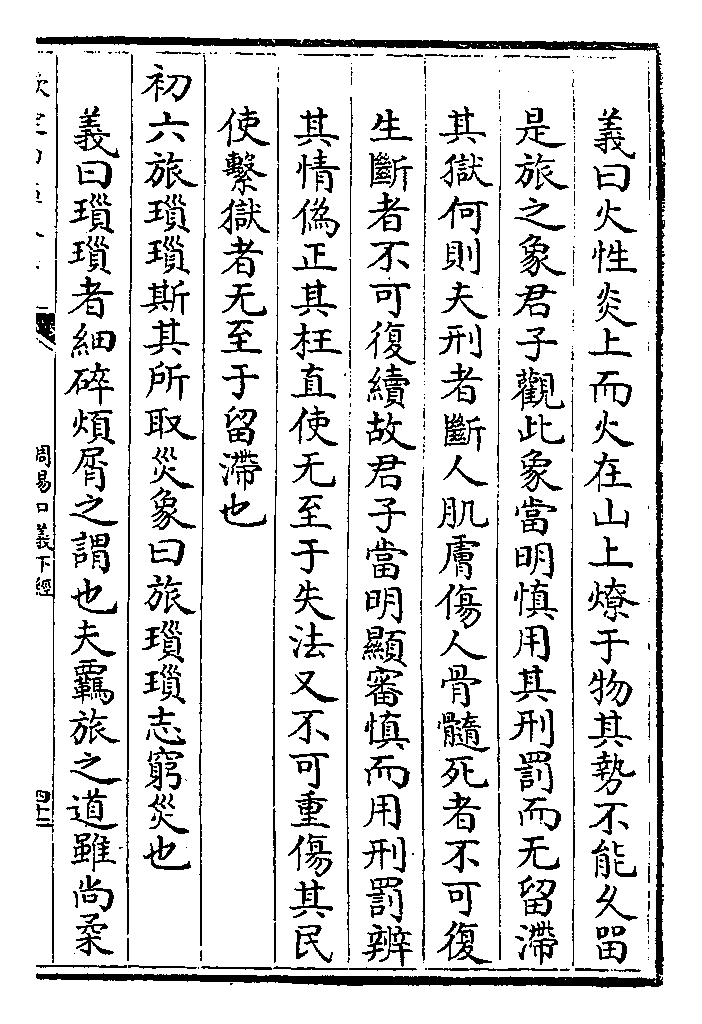 義曰火性炎上而火在山上燎于物其勢不能久留
是旅之象君子觀此象當明慎用其刑罰而无留滯
其獄何則夫刑者斷人肌膚傷人骨髓死者不可復
生斷者不可復續故君子當明顯審慎而用刑罰辨
其情僞正其枉直使无至于失法又不可重傷其民
使繫獄者无至于留滯也
初六旅瑣瑣斯其所取災象曰旅瑣瑣志窮災也
義曰瑣瑣者細碎煩屑之謂也夫羈旅之道雖尚柔
周易口義下經
四十二